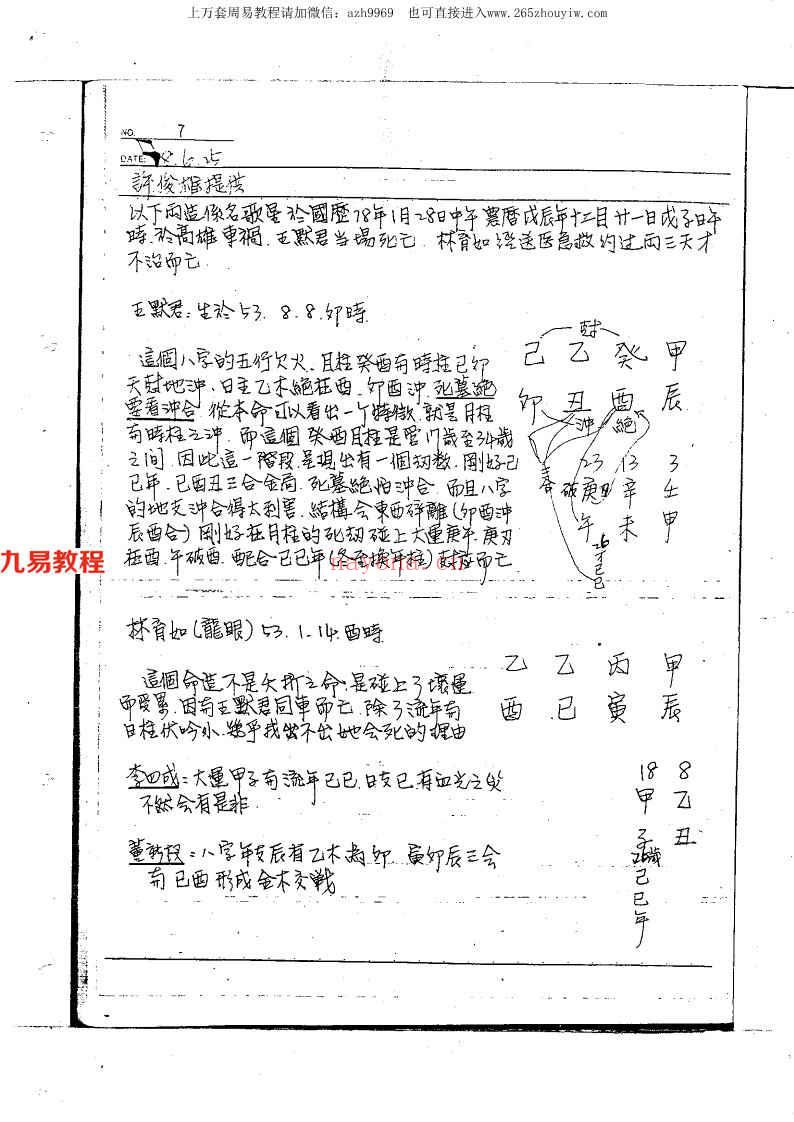 上万套周易教程请加微信：azh9969 也可直接进入www.265zhouyiw.com
NO. 7
DATE: 6.25
許俊雄提供
以下兩造係名歌星於國曆78年1月28日中午農曆戊辰年十二月廿一日戊子日午
時於高雄車禍.王默君当場死亡.林育如经送医急救約过兩三天才
不治而亡.
王默君:生於53. 8. 8.卯時.
這個八字的五行欠火.月柱癸酉与時柱己卯
天尅地沖.日主乙木絕在酉.卯酉沖.死墓絕
要看沖合.從本命可以看出一个特徵.就是月柱
与時柱之沖.而這個癸酉月柱是管17歲至34歲
之間.因此這一階段.呈現出有一個劫数.剛好己
巳年.巳酉丑三合金局.死墓絕怕沖合.而且八字
的地支沖合得太利害.結構会東西碎離(卯酉沖
辰酉合)剛好在月柱的死劫碰上大運庚午.庚刃
在酉.午破酉.配合己巳年(冬至換年柱)尅应而亡
尅
己 乙 癸 甲
卯 丑 酉 辰
沖 絕
23 13 3
破 庚 辛 壬
午 未 申
26
才
己
巳
九易教程
nayona.cn
林育如(龍眼) 53. 1. 14.酉時
這個命造不是夭折之命.是碰上了壞運
而受累.因与王默君同車而亡.除了流年与
日柱伏吟外.幾乎找出不出她会死的理由
乙 乙 丙 甲
酉 巳 寅 辰
李四成:大運甲子与流年己巳.日支巳.有血光之災
不然会有是非.
18 8
甲 乙
子 丑
26歲
己
巳
年
董新段:八字年支辰有乙木為卯.寅卯辰三会
与巳酉形成金木交戰